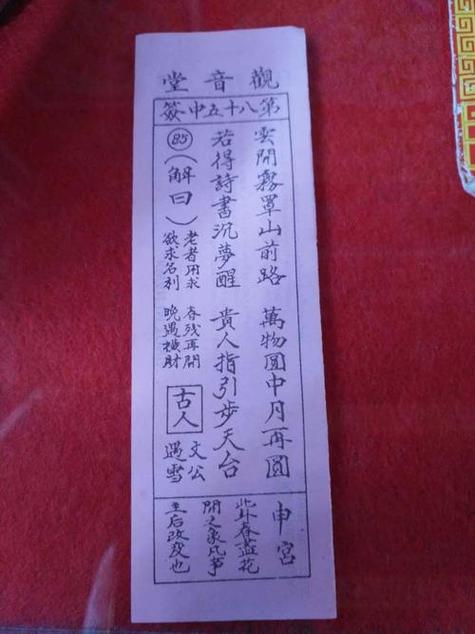 觀音堂
第八十五中簽
雲開霧罩山前路 萬物圓中月再圓
若得詩書沉夢醒 貴人指引步天台
85
（解曰）
老者用求 春残再開
欲求名利 晚遇橫財
古人
文公
遇雪
申宮
此卦春盡花
開之象凡事
主后改变也